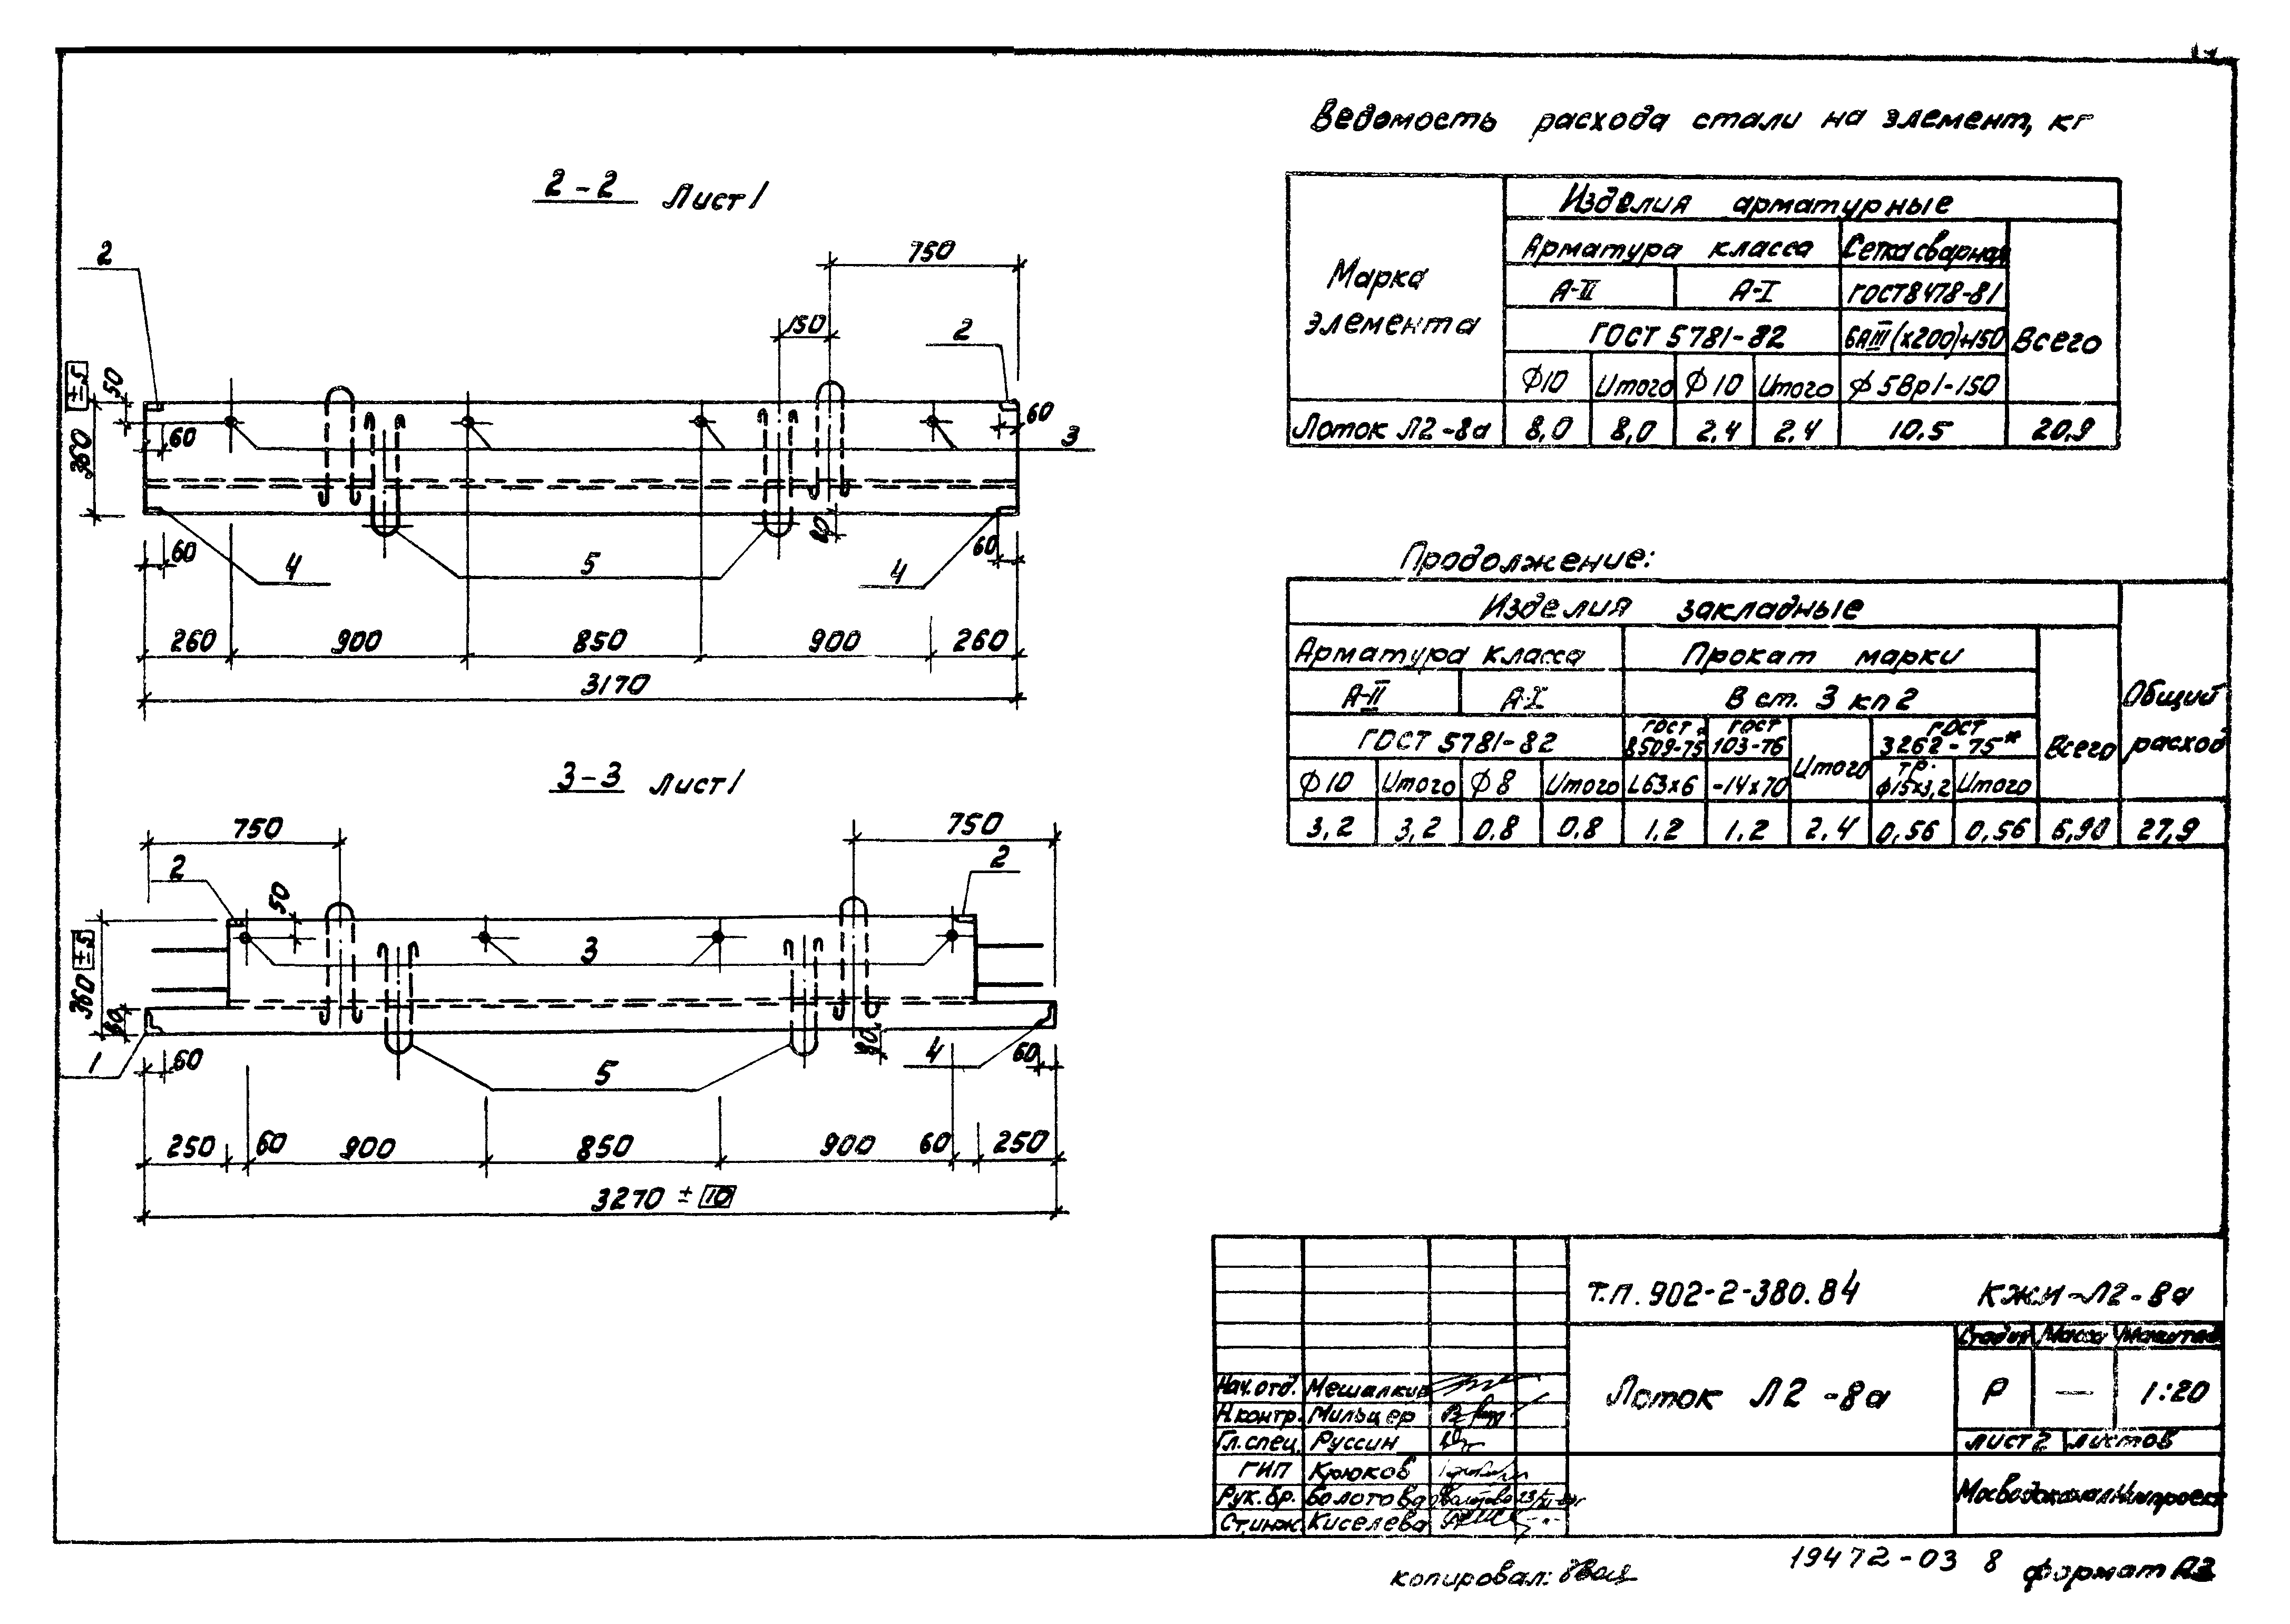 2-2 Лист 1
2
750
150
2
±5
50
360
60
60
3
80
60
4
5
4
60
260
900
850
900
260
3170
3-3 Лист 1
750
750
2
2
50
360 ±5
80
3
1
60
5
80
4
60
250
60
900
850
900
60
250
3270 ± 10
Ведомость расхода стали на элемент, кг
Марка элемента
Изделия арматурные
Арматура класса
Сетка сварная
Всего
А-II
А-I
ГОСТ 8478-81
ГОСТ 5781-82
Ф10 Итого Ф10 Итого Ф5Вр1-150
Лоток Л2-8а 8,0 8,0 2,4 2,4 10.5 20,9
Продолжение:
Изделия закладные
Общий расход
Арматура класса
Прокат марки
Всего
А-II
А-I
В ст. 3 кп 2
ГОСТ 5781-82
ГОСТ 8509-75
ГОСТ 103-76
Итого
ГОСТ 3262-75*
Ф10 Итого Ф8 Итого L63х6 -14х70
тр. Ф15х3,2 Итого
3,2 3,2 0.8 0.8 1.2 1.2 2.4 0,56 0,56 6,90 27,9
Т.П. 902-2-380.84
КЖИ-Л2-8а
Лоток Л2-8а
Стадия Масса Масштаб
Р — 1:20
Лист 2 Листов
Мосводоканалниипроект
Нач. отд. Мешалкин
Н.контр. Мильцер
Гл.спец. Руссин
ГИП Крюков
Рук. бр. Болотова
Ст.инж. Киселева
копировал:
19472-03 8
формат А3